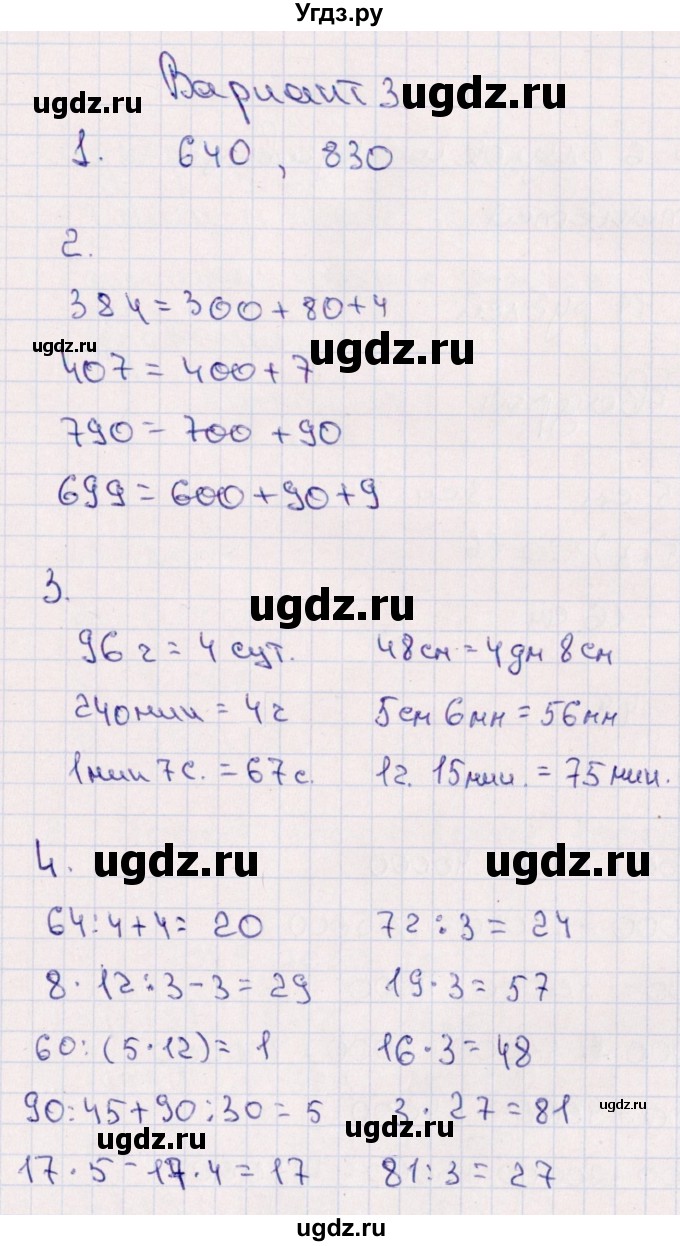 Угдз.ру
Вариант 3
ugdz.ru ugdz.ru
1. 640, 830
2.
384 = 300 + 80 + 4
ugdz.ru ugdz.ru
407 = 400 + 7
790 = 700 + 90
699 = 600 + 90 + 9
3.
ugdz.ru
96 ч = 4 сут. 48 см = 4 дм 8 см
240 мин = 4 ч 5 см 6 мм = 56 мм
1 мин 7 с. = 67 с. 1 ч. 15 мин. = 75 мин.
4. ugdz.ru ugdz.ru
64 : 4 + 4 = 20 72 : 3 = 24
8 · 12 : 3 - 3 = 29 19 · 3 = 57
60 : (5 · 12) = 1 16 · 3 = 48
90 : 45 + 90 : 30 = 5 3 · 27 = 81 ugdz.ru
ugdz.ru ugdz.ru
17 · 5 - 17 · 4 = 17 81 : 3 = 27
ugdz.ru